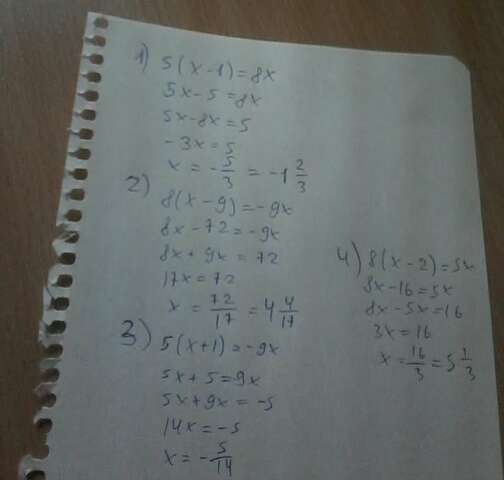 1) 5(x-1)=8x
5x-5=8x
5x-8x=5
-3x=5
x = -5/3 = -1 2/3
2) 8(x-9)=-9x
8x-72=-9x
8x+9x=72
17x=72
x = 72/17 = 4 4/17
3) 5(x+1)=-9x
5x+5=9x
5x+9x=-5
14x=-5
x=-5/14
4) 8(x-2)=5x
8x-16=5x
8x-5x=16
3x=16
x=16/3=5 1/3